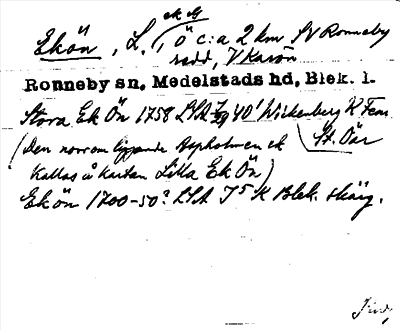 Ekön, L., ö c:a 2 km SV Ronneby
redd, V Karön
Ronneby sn, Medelstads hd, Blek. l.
Stora Ek Ön 1758 LSA 40' Wickenberg K
(Den norrom liggande Aspholmen ek St. Öar
kallas å kartan Lilla Ek Ön)
Ekön 1700-50? LSA J5 K Blek. skärg.